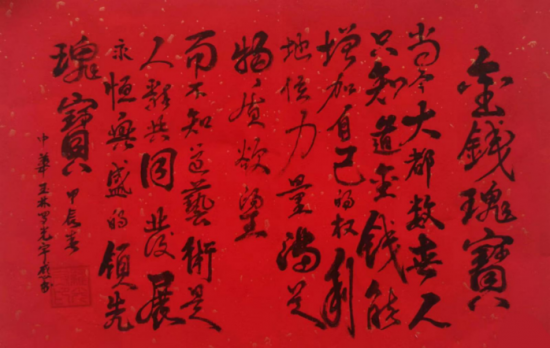 金錢瑰寶
当今大都数世人
只知道金錢能
增加自己的权利
地位力量满足
物质欲望
而不知道藝術是
人類共同发展
永恒興盛的领先
瑰寶
甲辰春
中華